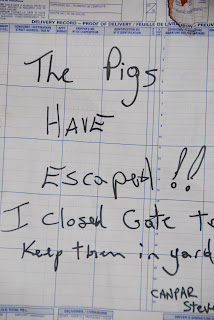 DELIVERY RECORD – PROOF OF DELIVERY / FEUILLE DE LIVRAISON
The Pigs
HAVE
Escaped!!
I Closed Gate To
Keep them in yard
CANPAR
Steve